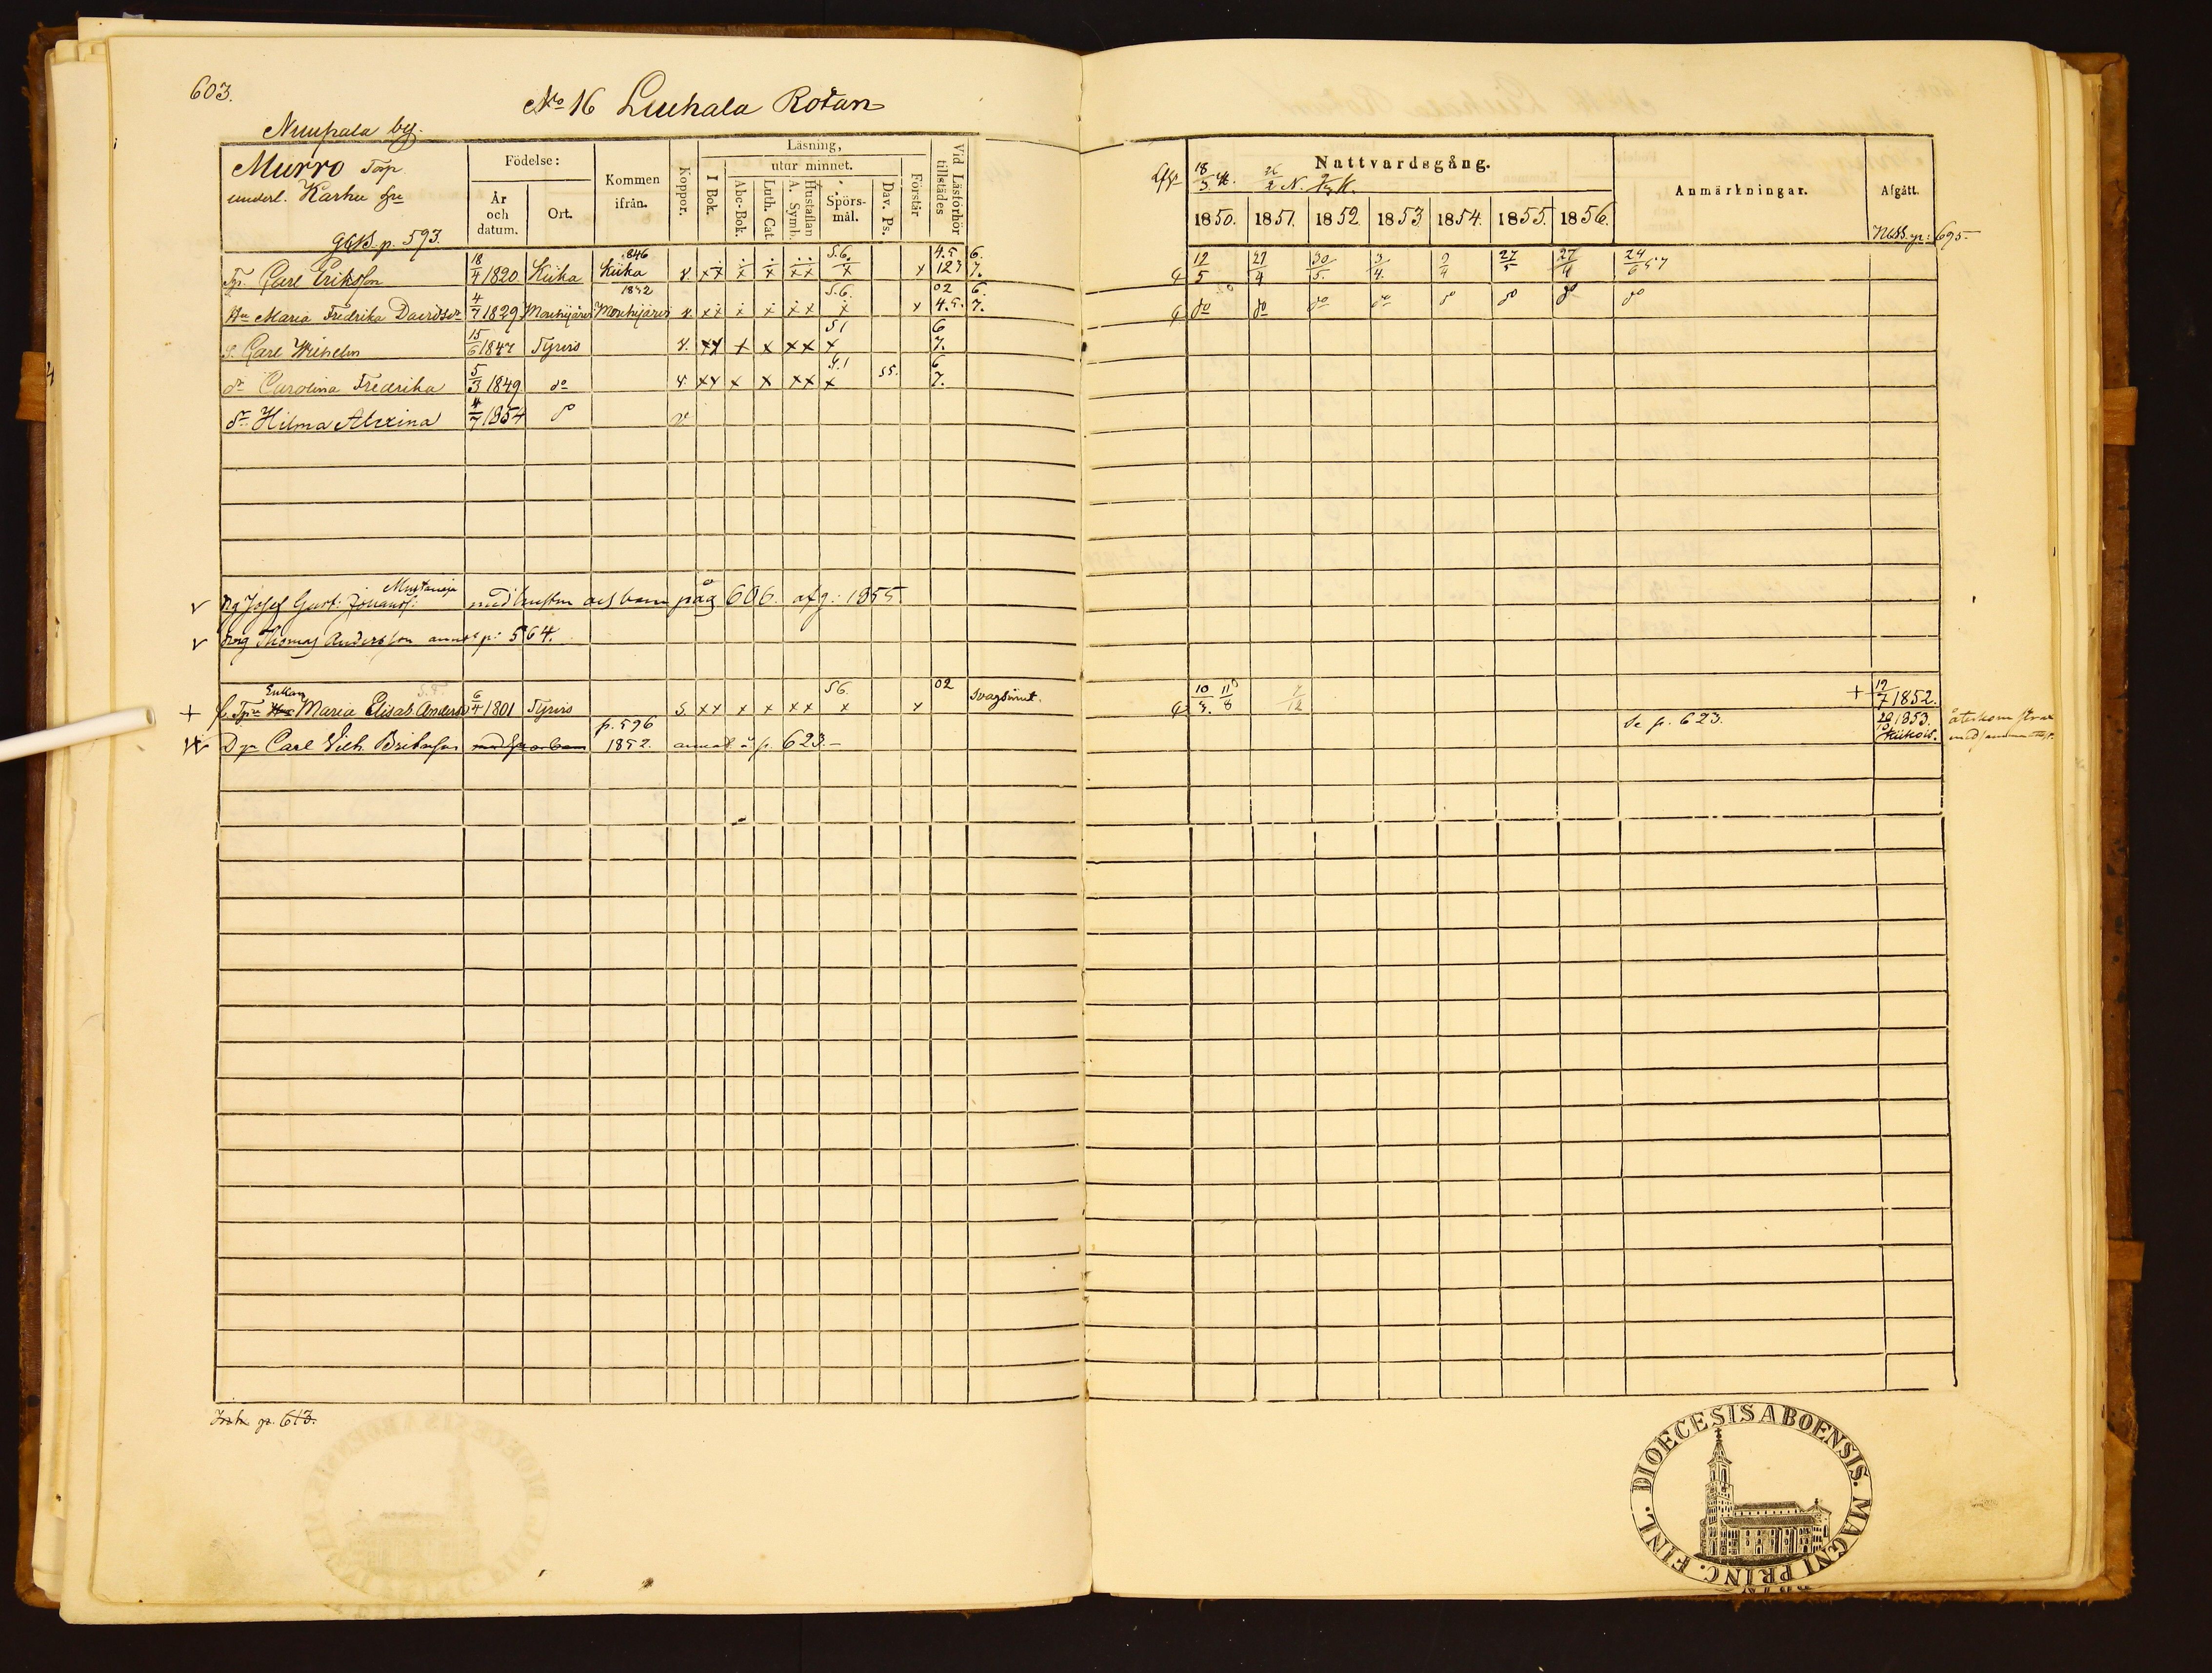 603.
No 16 Liuhala Rotan
Nuupala by.
Murro Torp.
underl. Karku
GKB. p. 593.
Födelse:
År och datum.
Ort.
Kommen ifrån.
Koppor.
Läsning,
I Bok.
utur minnet.
Abc-Bok.
Luth. Cat.
Hustaflan A. Symb.
Spörs-mål.
Dav. Ps.
Förstår
Vid Läsförhör tillstädes
Nattvardsgång.
1850. 1851. 1852. 1853 1854. 1855. 1856.
Anmärkningar.
Afgått.
NKB. p: 695.
Tp. Carl Eriksson 18/4 1820 Kiika 846 Kiika v. xx x x xx 5.6. x x 4.5 6. 123 7. 12/5 27/4 30/5. 3/4. 2/4 27/5 27/4 24/6 57
Hu Maria Fredrika Davidsdr 4/7 1829 Mouhijärvi 1842 Mouhijärvi v. xx x x xx 5.6. x x 02 6. 4.5. 7. do do do do do do do do
S. Carl Wilhelm 15/6 1847 Tyrvis v. xx x x xx x 51 6 7.
dr Carolina Fredrika 5/3 1849 do v. xx x x xx x 5.1 55. 6 7.
dr Hilma Alexina 4/7 1854 do v
Mustanoja
v Josef Gust: Johanss: med hustru och barn påg 606. afg: 1855.
v Drg Thomas Andersson ann: p: 564.
Enkan
+ f. Maria Elisab Anders 6/4 1801 Tyrvis s xx x x xx x 56. x 02 svagsint. 10/3. 11/8 7/12 + 12/7 1852.
Carl Vilh. med barn p. 596 1852. annot å p. 623.- Se p. 623. 1853. Kiikois. återkom strax
p. 613.
DIOECESIS ABOENSIS. MAGNI PRINC. FINL.